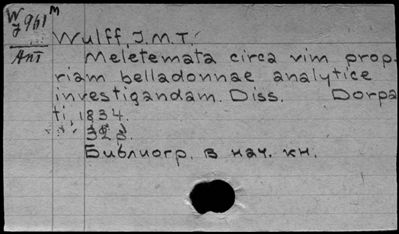 W M
J 961
Ant
Wulff, J. M. T.
Meletemata circa vim prop
riam belladonnae analytice
investigandam. Diss. Dorpa
ti, 1834.
323.
Библиогр. в нач. кн.